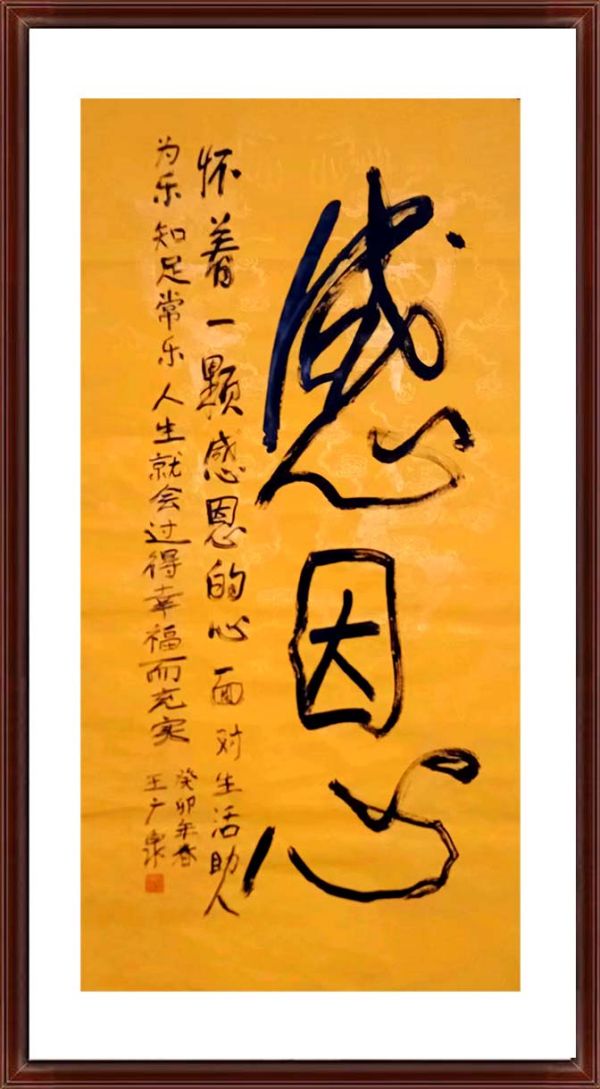 感恩
怀着一颗感恩的心面对生活助人
为乐知足常乐人生就会过得幸福而充实
癸卯年春
王广泉